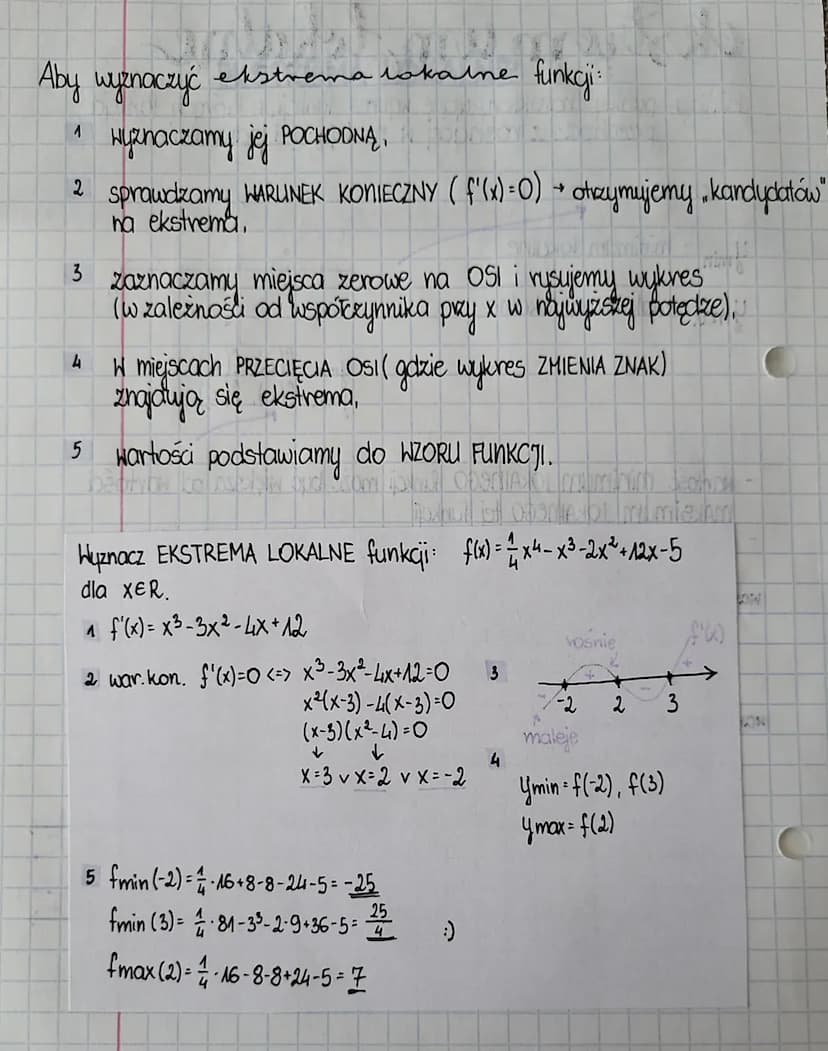 Aby wyznaczyć ekstrema lokalne funkcji:
1 wyznaczamy jej POCHODNĄ,
2 sprawdzamy WARUNEK KONIECZNY (f'(x)=0) → otrzymujemy „kandydatów"
na ekstrema,
3 zaznaczamy miejsca zerowe na OSI i rysujemy wykres
(w zależności od współczynnika przy x w najwyższej potędze),
4 w miejscach PRZECIĘCIA OSI (gdzie wykres ZMIENIA ZNAK)
znajdują się ekstrema,
5 wartości podstawiamy do WZORU FUNKCJI.
Wyznacz EKSTREMA LOKALNE funkcji: f(x)=\frac{1}{4}x⁴-x³-2x²+12x-5
dla x∈R.
1 f'(x)=x³-3x²-4x+12
2 war. kon. f'(x)=0 <=> x³-3x²-4x+12=0
x²(x-3)-4(x-3)=0
(x-3)(x²-4)=0
↓ ↓
x=3 ∨ x=2 ∨ x=-2
3 rośnie f'(x)
- + - +
-2 2 3
maleje
4 ymin=f(-2), f(3)
ymax=f(2)
5 fmin(-2)=\frac{1}{4}·16+8-8-24-5=-25
fmin(3)=\frac{1}{4}·81-3³-2·9+36-5=\frac{25}{4} :)
fmax(2)=\frac{1}{4}·16-8-8+24-5=7